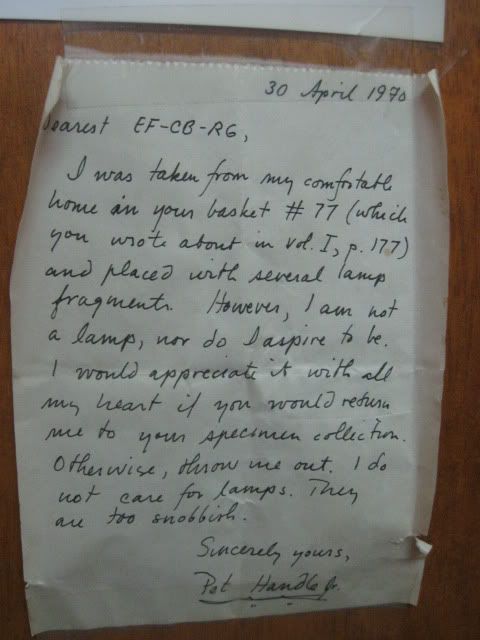 30 April 1970
Dearest EF-CB-RG,
I was taken from my comfortable
home in your basket # 77 (which
you wrote about in Vol. I, p. 177)
and placed with several lamp
fragments. However, I am not
a lamp, nor do I aspire to be.
I would appreciate it with all
my heart if you would return
me to your specimen collection.
Otherwise, throw me out. I do
not care for lamps. They
are too snobbish.
Sincerely yours,
Pot Handle Jr.